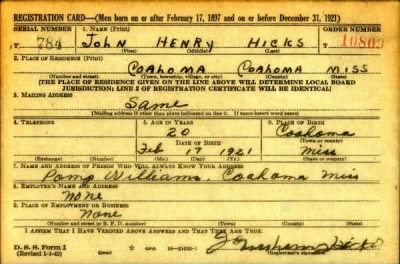 REGISTRATION CARD—(Men born on or after February 17, 1897 and on or before December 31, 1921)
SERIAL NUMBER 1. NAME (Print) ORDER NUMBER
T 784 JOHN HENRY HICKS T 10809
(First) (Middle) (Last)
2. PLACE OF RESIDENCE (Print)
COAHOMA COAHOMA MISS
(Number and street) (Town, township, village, or city) (County) (State)
[THE PLACE OF RESIDENCE GIVEN ON THE LINE ABOVE WILL DETERMINE LOCAL BOARD
JURISDICTION; LINE 2 OF REGISTRATION CERTIFICATE WILL BE IDENTICAL]
3. MAILING ADDRESS
Same
[Mailing address if other than place indicated on line 2. If same insert word same]
4. TELEPHONE 5. AGE IN YEARS 6. PLACE OF BIRTH
20 Coahoma
DATE OF BIRTH (Town or county)
Feb 17 1921 Miss
(Exchange) (Number) (Mo.) (Day) (Yr.) (State or country)
7. NAME AND ADDRESS OF PERSON WHO WILL ALWAYS KNOW YOUR ADDRESS
Pomp Williams. Coahoma Miss
8. EMPLOYER'S NAME AND ADDRESS
None
9. PLACE OF EMPLOYMENT OR BUSINESS
None
(Number and street or R. F. D. number) (Town) (County) (State)
I AFFIRM THAT I HAVE VERIFIED ABOVE ANSWERS AND THAT THEY ARE TRUE.
D. S. S. Form 1
(Revised 1-1-42) GPO (Registrant's signature)